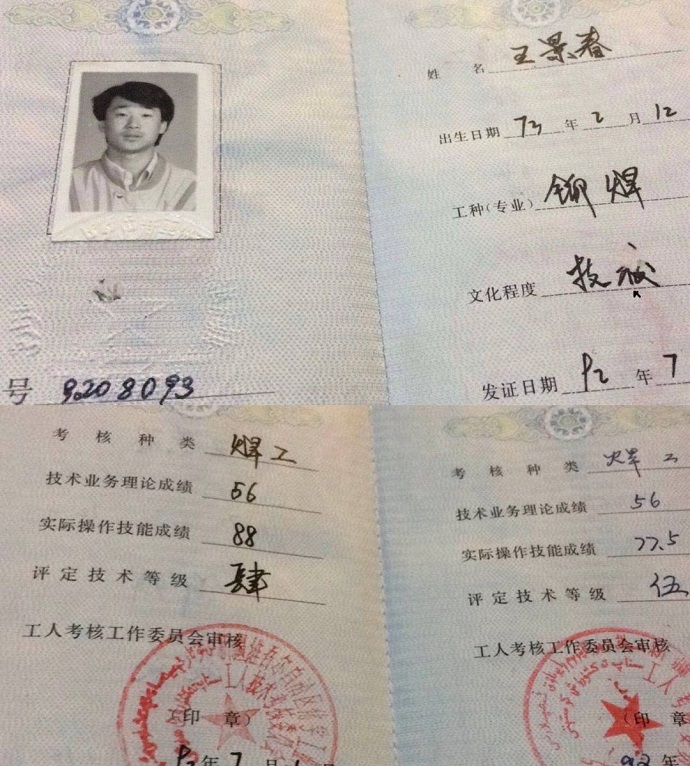 号 9208093
姓 名 王景春
出生日期 73 年 2 月 12
工种(专业) 铆焊
文化程度 技校
发证日期 92 年 7
考 核 种 类 焊工
技术业务理论成绩 56
实际操作技能成绩 88
评定技术等级 肆
工人考核工作委员会审核
(印 章)
92 年 7 月
考 核 种 类 焊工
技术业务理论成绩 56
实际操作技能成绩 77.5
评定技术等级 伍
工人考核工作委员会审核
(印 章
92 年